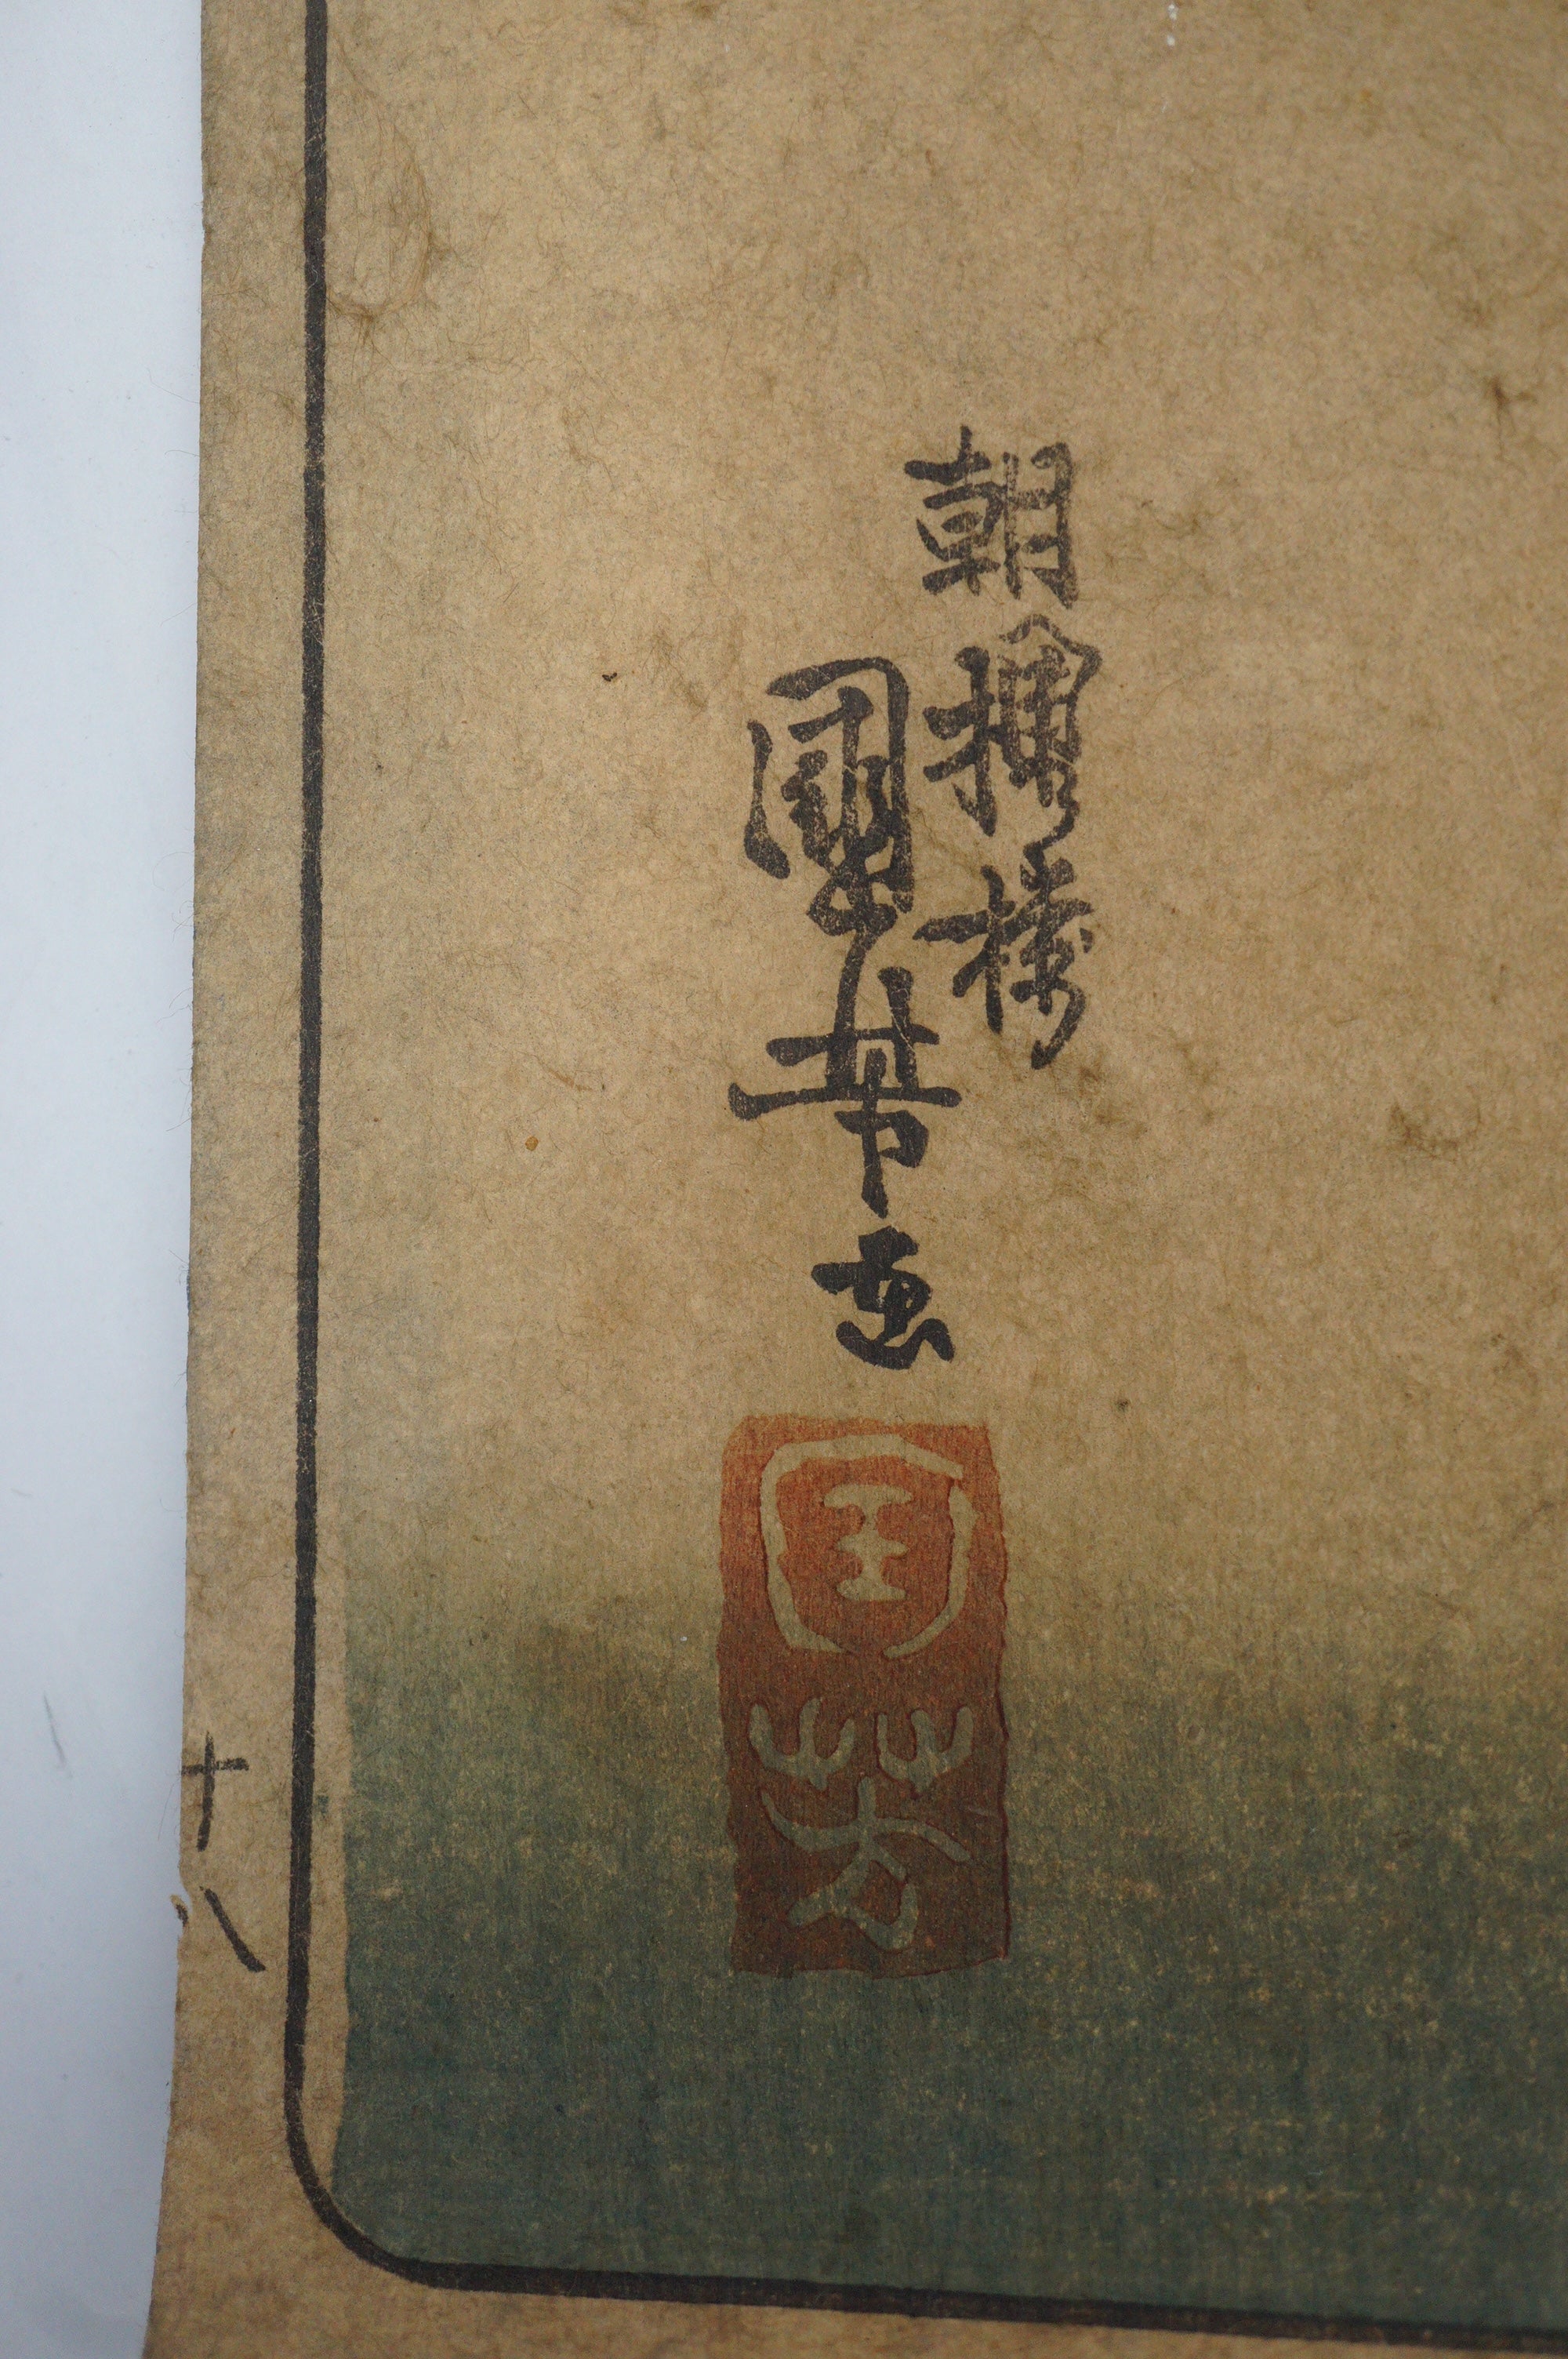 朝櫻樓
國芳画
国芳
十八